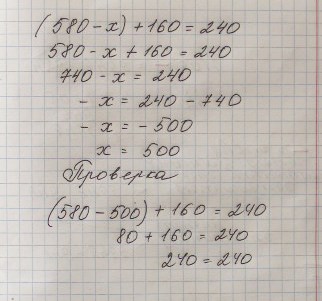 (580 - x) + 160 = 240
580 - x + 160 = 240
740 - x = 240
- x = 240 - 740
- x = - 500
x = 500
Проверка
(580 - 500) + 160 = 240
80 + 160 = 240
240 = 240